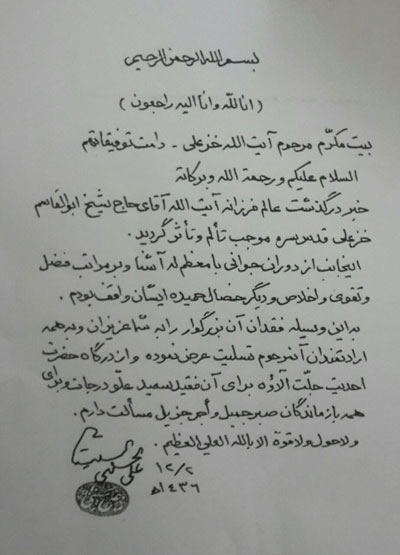 بسم الله الرحمن الرحیم
(انا لله وانا الیه راجعون)
بیت مکرّم مرحوم آیت الله خزعلی - دامت توفیقاتهم
السلام علیکم ورحمة الله وبرکاته
خبر درگذشت عالم فرزانه آیت الله آقای حاج شیخ ابوالقاسم
خزعلی قدس سره موجب تألم وتأثر گردید.
اینجانب از دوران جوانی با معظم له آشنا وبر مراتب فضل
وتقوی واخلاص ودیگر خصال حمیده ایشان واقف بودم.
به این وسیله فقدان آن بزرگوار را به شما عزیزان وبه همه
ارادتمندان آنمرحوم تسلیت عرض نموده واز درگاه حضرت
احدیت جلّت آلاؤه برای آن فقید سعید علوّ درجات وبرای
همه بازماندگان صبر جمیل واجر جزیل مسألت دارم.
ولا حول ولا قوة الا بالله العلی العظیم.
علی الحسینی السیستانی
۱۲/۲
۱۴۳۶ه